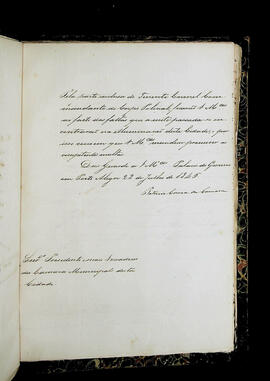 Pela parte inclusa do Tenente Coronel Com
mandante do Corpo Policial, ficarão V Mces
ao facto das faltas que a noite passada se
encontrarão na illuminação desta Cidade; por
isso cumpre que V Mces mandem promover a
competente multa.
Deos Guarde a V Mces Palacio do Governo
em Porto Alegre 22 de Julho de 1846
Patricio Correa da Camara
Snres Presidente e mais Vereadores
da Camara Municipal desta
Cidade